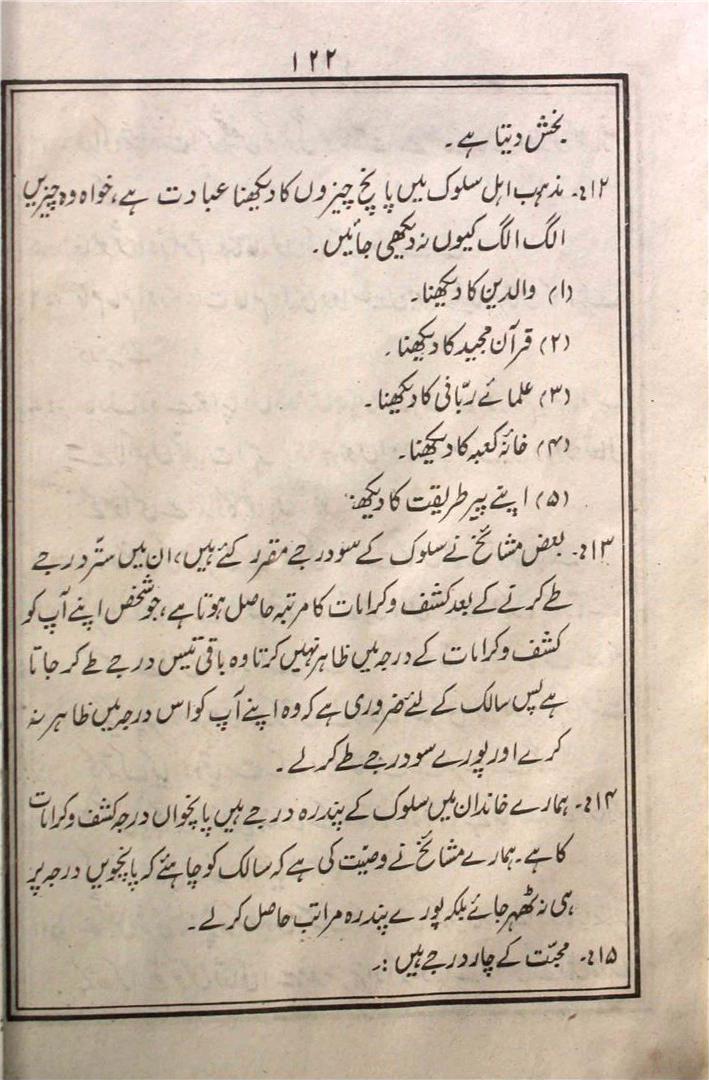 ۱۲۲
بخش دیتا ہے۔
۱۲؎۔ مذہب اہل سلوک میں پانچ چیزوں کا دیکھنا عبادت ہے، خواہ وہ چیزیں
الگ الگ کیوں نہ دیکھی جائیں۔
(۱) والدین کا دیکھنا۔
(۲) قرآن مجید کا دیکھنا۔
(۳) علمائے ربّانی کا دیکھنا۔
(۴) خانۂ کعبہ کا دیکھنا۔
(۵) اپنے پیر طریقت کا دیکھنا
۱۳؎۔ بعض مشائخ نے سلوک کے سو درجے مقرر کئے ہیں، ان میں ستّر درجے
طے کرنے کے بعد کشف و کرامات کا مرتبہ حاصل ہوتا ہے، جو شخص اپنے آپ کو
کشف و کرامات کے درجہ میں ظاہر نہیں کرتا وہ باقی تیس درجے طے کر جاتا
ہے پس سالک کے لئے ضروری ہے کہ وہ اپنے آپ کو اس درجہ میں ظاہر نہ
کرے اور پورے سو درجے طے کر لے۔
۱۴؎۔ ہمارے خاندان میں سلوک کے پندرہ درجے ہیں پانچواں درجہ کشف و کرامات
کا ہے۔ ہمارے مشائخ نے وصیّت کی ہے کہ سالک کو چاہئے کہ پانچویں درجہ پر
ہی نہ ٹھہر جائے بلکہ پورے پندرہ مراتب حاصل کر لے۔
۱۵؎۔ محبّت کے چار درجے ہیں :۔